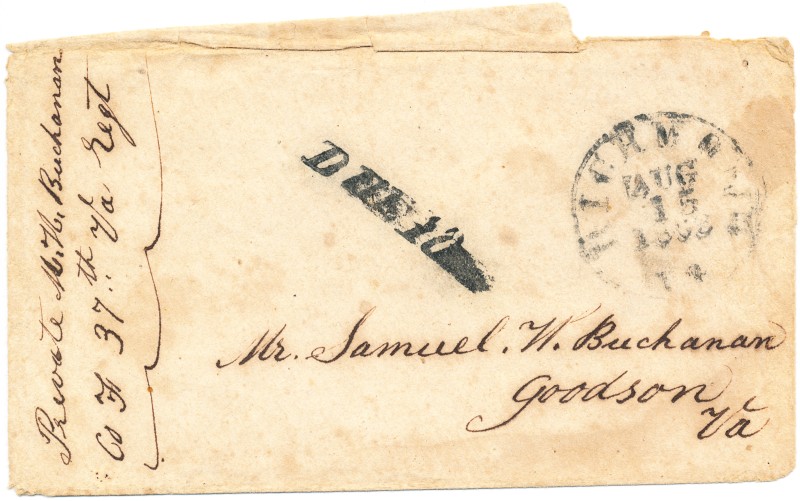 Private M. H. Buchanan
Co H 37th Va Regt
DUE 10
RICHMOND
AUG
15
Mr. Samuel. W. Buchanan
Goodson
Va